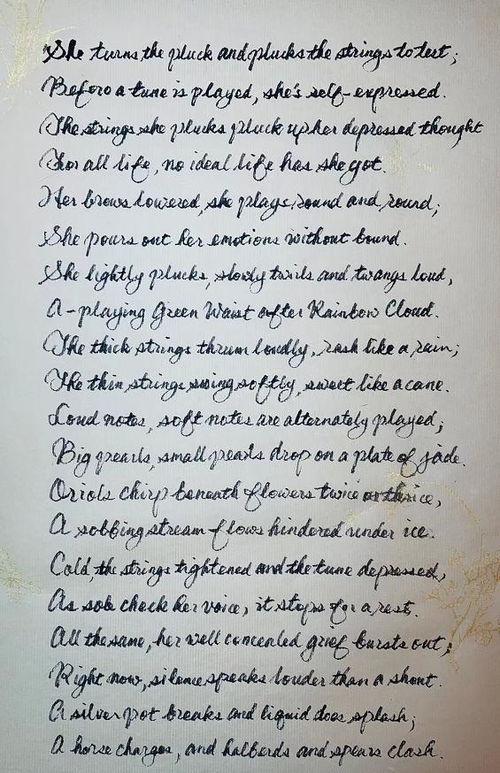 She turns the pluck and plucks the strings to test;
Before a tune is played, she's self-expressed.
The strings she plucks pluck up her depressed thought
For all life, no ideal life has she got.
Her brows lowered, she plays round and round;
She pours out her emotions without bound.
She lightly plucks, slowly twirls and twangs loud,
A-playing Green Waist after Rainbow Cloud.
The thick strings thrum loudly, rash like a rain;
The thin strings swing softly, sweet like a cane.
Loud notes, soft notes are alternately played;
Big pearls, small pearls drop on a plate of jade.
Oriols chirp beneath flowers twice or thrice,
A sobbing stream flows hindered under ice.
Cold, the strings tightened and the tune depressed,
As sobs check her voice, it stops for a rest.
All the same, her well concealed grief bursts out;
Right now, silence speaks louder than a shout.
A silver pot breaks and liquid does splash;
A horse charges, and halberds and spears clash.